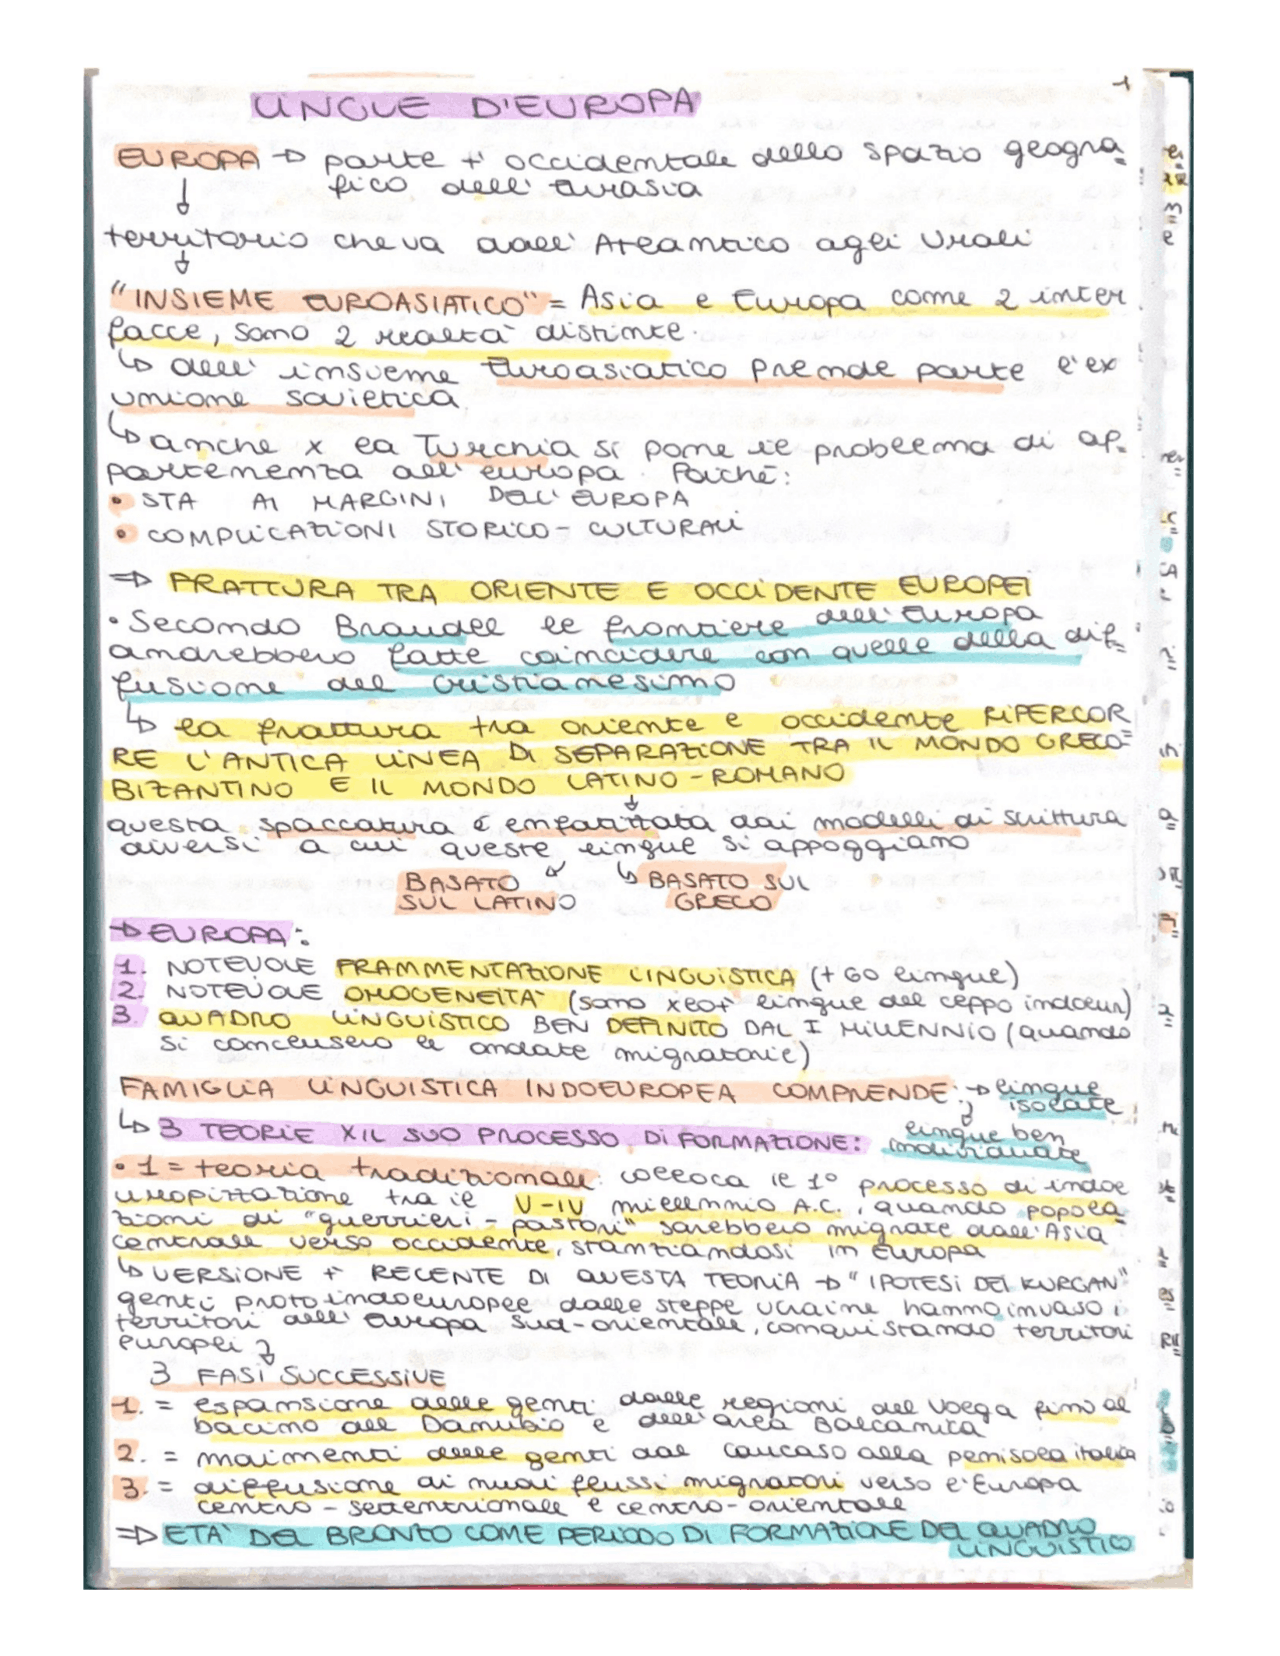 1
LINGUE D'EUROPA
EUROPA → parte + occidentale dello spazio geogra=
fico dell'Eurasia
↓
territorio che va dall'Atlantico agli Urali
↓
"INSIEME EUROASIATICO" = Asia e Europa come 2 inter
facce, sono 2 realtà distinte.
↳ dell'insieme Euroasiatico prende parte l'ex
unione sovietica
↳ anche x la Turchia si pone il problema di ap=
partenenza all'europa. Poiché:
• STA AI MARGINI DELL'EUROPA
• COMPLICAZIONI STORICO-CULTURALI
⇒ FRATTURA TRA ORIENTE E OCCIDENTE EUROPEI
• Secondo Braudel le frontiere dell'Europa
andrebbero fatte coincidere con quelle della dif=
fusione del cristianesimo
↳ la frattura tra oriente e occidente RIPERCOR
RE L'ANTICA LINEA DI SEPARAZIONE TRA IL MONDO GRECO=
BIZANTINO E IL MONDO LATINO-ROMANO
↓
questa spaccatura è enfatizzata dai modelli di scrittura
diversi a cui queste lingue si appoggiano
BASATO SUL LATINO ↳ BASATO SUL GRECO
→ EUROPA:
1. NOTEVOLE FRAMMENTAZIONE LINGUISTICA (+ 60 lingue)
2. NOTEVOLE OMOGENEITÀ (sono x lo + lingue del ceppo indoeur)
3. QUADRO LINGUISTICO BEN DEFINITO DAL I MILLENNIO (quando
si conclusero le ondate migratorie)
FAMIGLIA LINGUISTICA INDOEUROPEA COMPRENDE: → lingue isolate,
lingue ben individuate
↳ 3 TEORIE X IL SUO PROCESSO DI FORMAZIONE:
• 1 = teoria tradizionale: colloca il 1° processo di indoe
uropizzazione tra il V-IV millennio A.C., quando popola
zioni di "guerrieri-pastori" sarebbero migrate dall'Asia
centrale verso occidente, stanziandosi in Europa
↳ VERSIONE + RECENTE DI QUESTA TEORIA → "IPOTESI DEI KURGAN"
genti protoindoeuropee dalle steppe ucraine hanno invaso i
territori dell'Europa sud-orientale, conquistando territori
europei
3 FASI SUCCESSIVE
1. = espansione delle genti dalle regioni del Volga fino al
bacino del Danubio e dell'area Balcanica
2. = movimenti delle genti dal Caucaso alla penisola italica
3. = diffusione di nuovi flussi migratori verso l'Europa
centro-settentrionale e centro-orientale
⇒ ETÀ DEL BRONZO COME PERIODO DI FORMAZIONE DEL QUADRO
LINGUISTICO